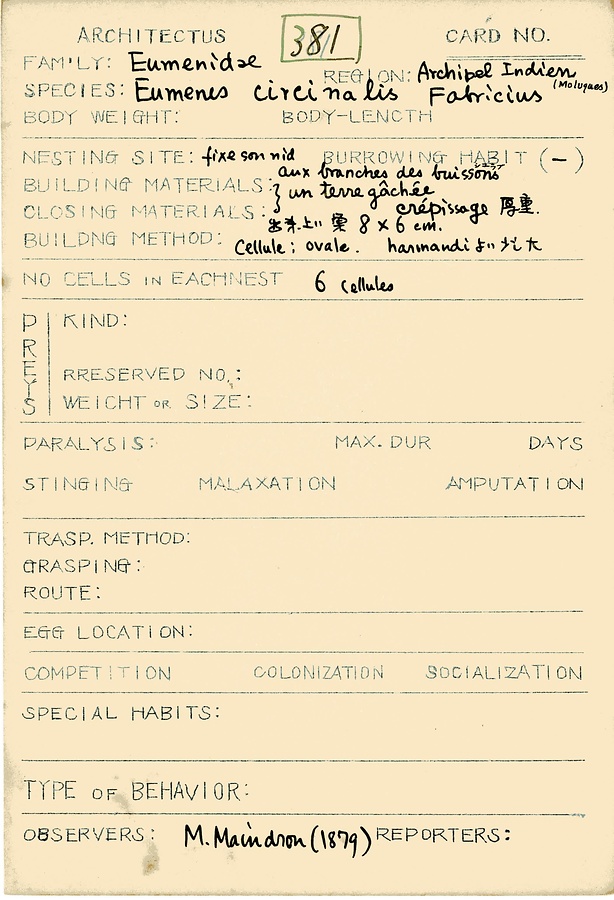 ARCHITECTUS 381 CARD NO.
FAMILY: Eumenidae REGION: Archipel Indien (Moluques)
SPECIES: Eumenes circinalis Fabricius
BODY WEIGHT: BODY-LENGTH
NESTING SITE: fixe son nid BURROWING HABIT (−)
aux branches des buissons
BUILDING MATERIALS: un terre gâchée
CLOSING MATERIALS: crépissage 厚重.
8 x 6 cm.
BUILDNG METHOD: Cellule; ovale. harmandi より大
NO CELLS IN EACHNEST 6 cellules
PREYS
KIND:
RRESERVED NO.:
WEICHT OR SIZE:
PARALYSIS: MAX. DUR DAYS
STINGING MALAXATION AMPUTATION
TRASP. METHOD:
GRASPING:
ROUTE:
EGG LOCATION:
COMPETITION COLONIZATION SOCIALIZATION
SPECIAL HABITS:
TYPE OF BEHAVIOR:
OBSERVERS: M. Maindron (1879) REPORTERS: